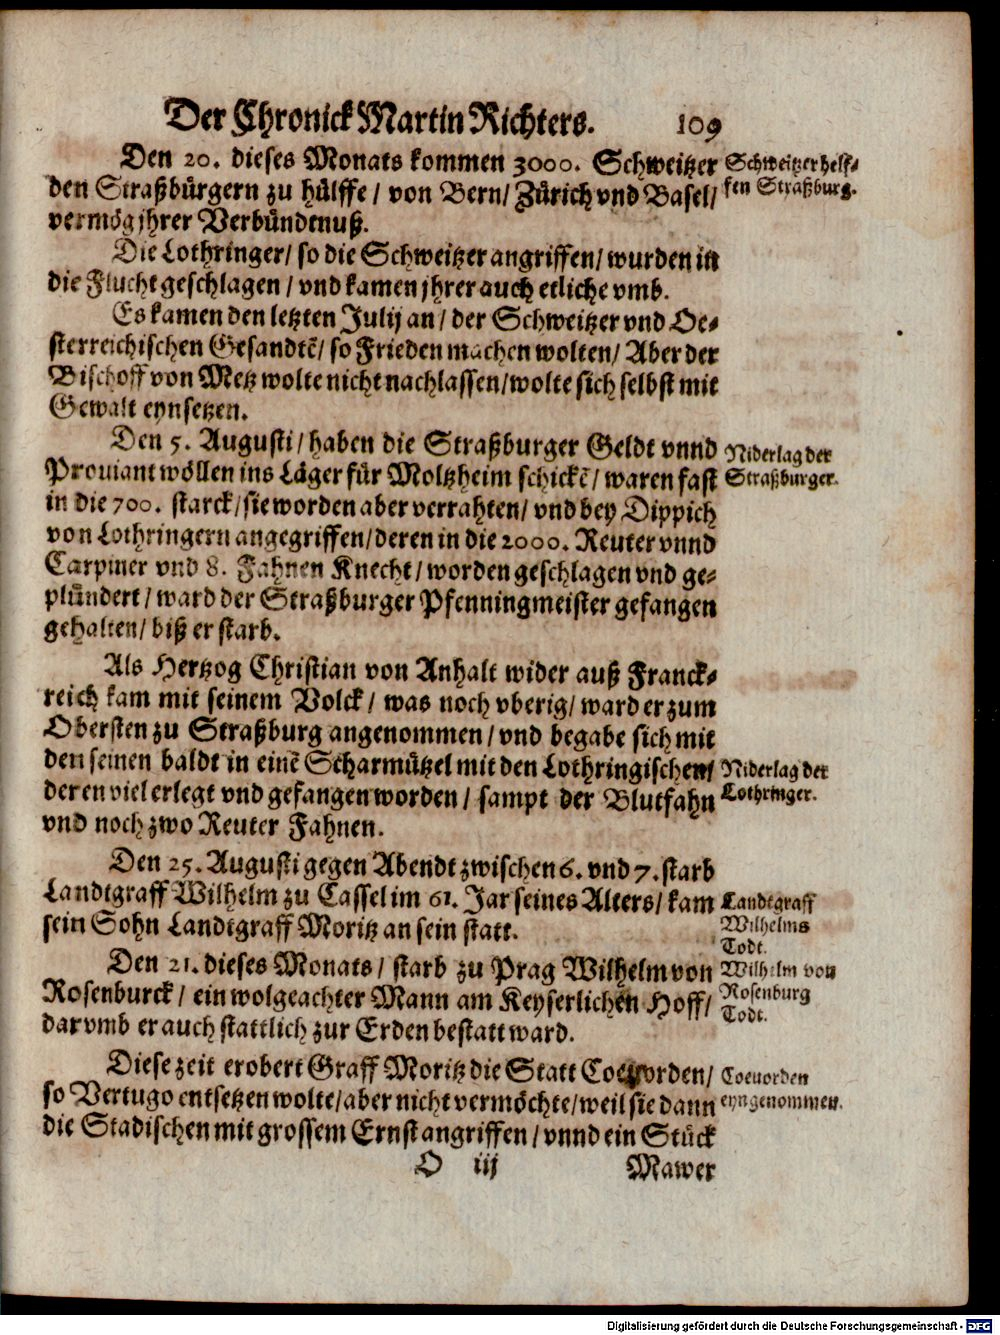 Der Chronick Martin Richters. 109
Den 20. dieses Monats kommen 3000. Schweitzer
den Straßbürgern zu hülffe / von Bern / Zürich vnd Basel /
vermög jhrer Verbündtnuß.
Schweitzer helf-
fen Straßburg.
Die Lothringer / so die Schweitzer angriffen / wurden in
die Flucht geschlagen / vnd kamen jhrer auch etliche vmb.
Es kamen den letzten Julij an / der Schweitzer vnd Oe-
sterreichischen Gesandtē / so Frieden machen wolten / Aber der
Bischoff von Metz wolte nicht nachlassen / wolte sich selbst mit
Gewalt eynsetzen.
Den 5. Augusti / haben die Straßburger Geldt vnnd
Prouiant wöllen ins Läger für Moltzheim schickē / waren fast
in die 700. starck / sie worden aber verrahten / vnd bey Dippich
von Lothringern angegriffen / deren in die 2000. Reuter vnnd
Carpiner vnd 8. Fahnen Knecht / worden geschlagen vnd ge-
plündert / ward der Straßburger Pfenningmeister gefangen
gehalten / biß er starb.
Niderlag der
Straßburger.
Als Hertzog Christian von Anhalt wider auß Franck-
reich kam mit seinem Volck / was noch vberig / ward er zum
Obersten zu Straßburg angenommen / vnd begabe sich mit
den seinen baldt in einē Scharmützel mit den Lothringischen /
deren viel erlegt vnd gefangen worden / sampt der Blutfahn
vnd noch zwo Reuter Fahnen.
Niderlag der
Lothringer.
Den 25. Augusti gegen Abendt zwischen 6. vnd 7. starb
Landtgraff Wilhelm zu Cassel im 61. Jar seines Alters / kam
sein Sohn Landtgraff Moritz an sein statt.
Landtgraff
Wilhelms
Todt.
Den 21. dieses Monats / starb zu Prag Wilhelm von
Rosenburck / ein wolgeachter Mann am Keyserlichen Hoff /
darvmb er auch stattlich zur Erden bestatt ward.
Wilhelm von
Rosenburg
Todt.
Diese zeit erobert Graff Moritz die Statt Coeuorden /
so Vertugo entsetzen wolte / aber nicht vermöchte / weil sie dann
die Stadischen mit grossem Ernst angriffen / vnnd ein Stück
Coeuorden
eyngenommen.
O iij Mawer
Digitalisierung gefördert durch die Deutsche Forschungsgemeinschaft - DFG